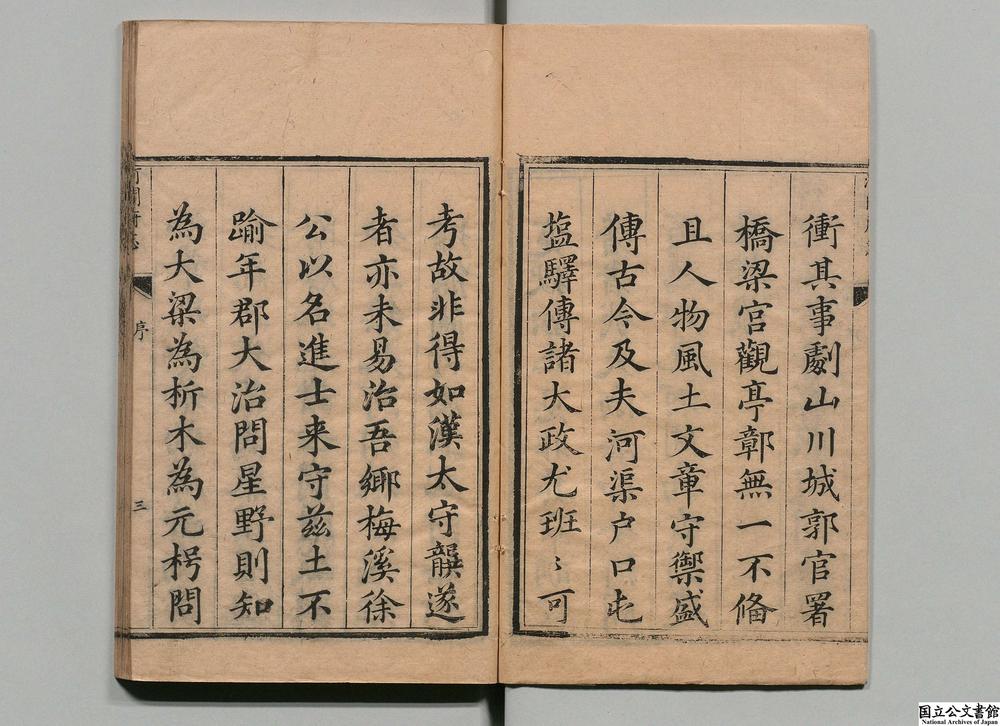 衝其事劇山川城郭官署
橋梁宫觀亭鄣無一不俻
且人物風土文章守禦盛
傳古今及夫河渠户口屯
塩驛傳諸大政尤班〻可
考故非得如漢太守龔遂
者亦未易治吾鄉梅溪徐
公以名進士来守兹土不
踰年郡大治問星野則知
為大梁為析木為元枵問
河間府志
序
三
国立公文書館
National Archives of Japan